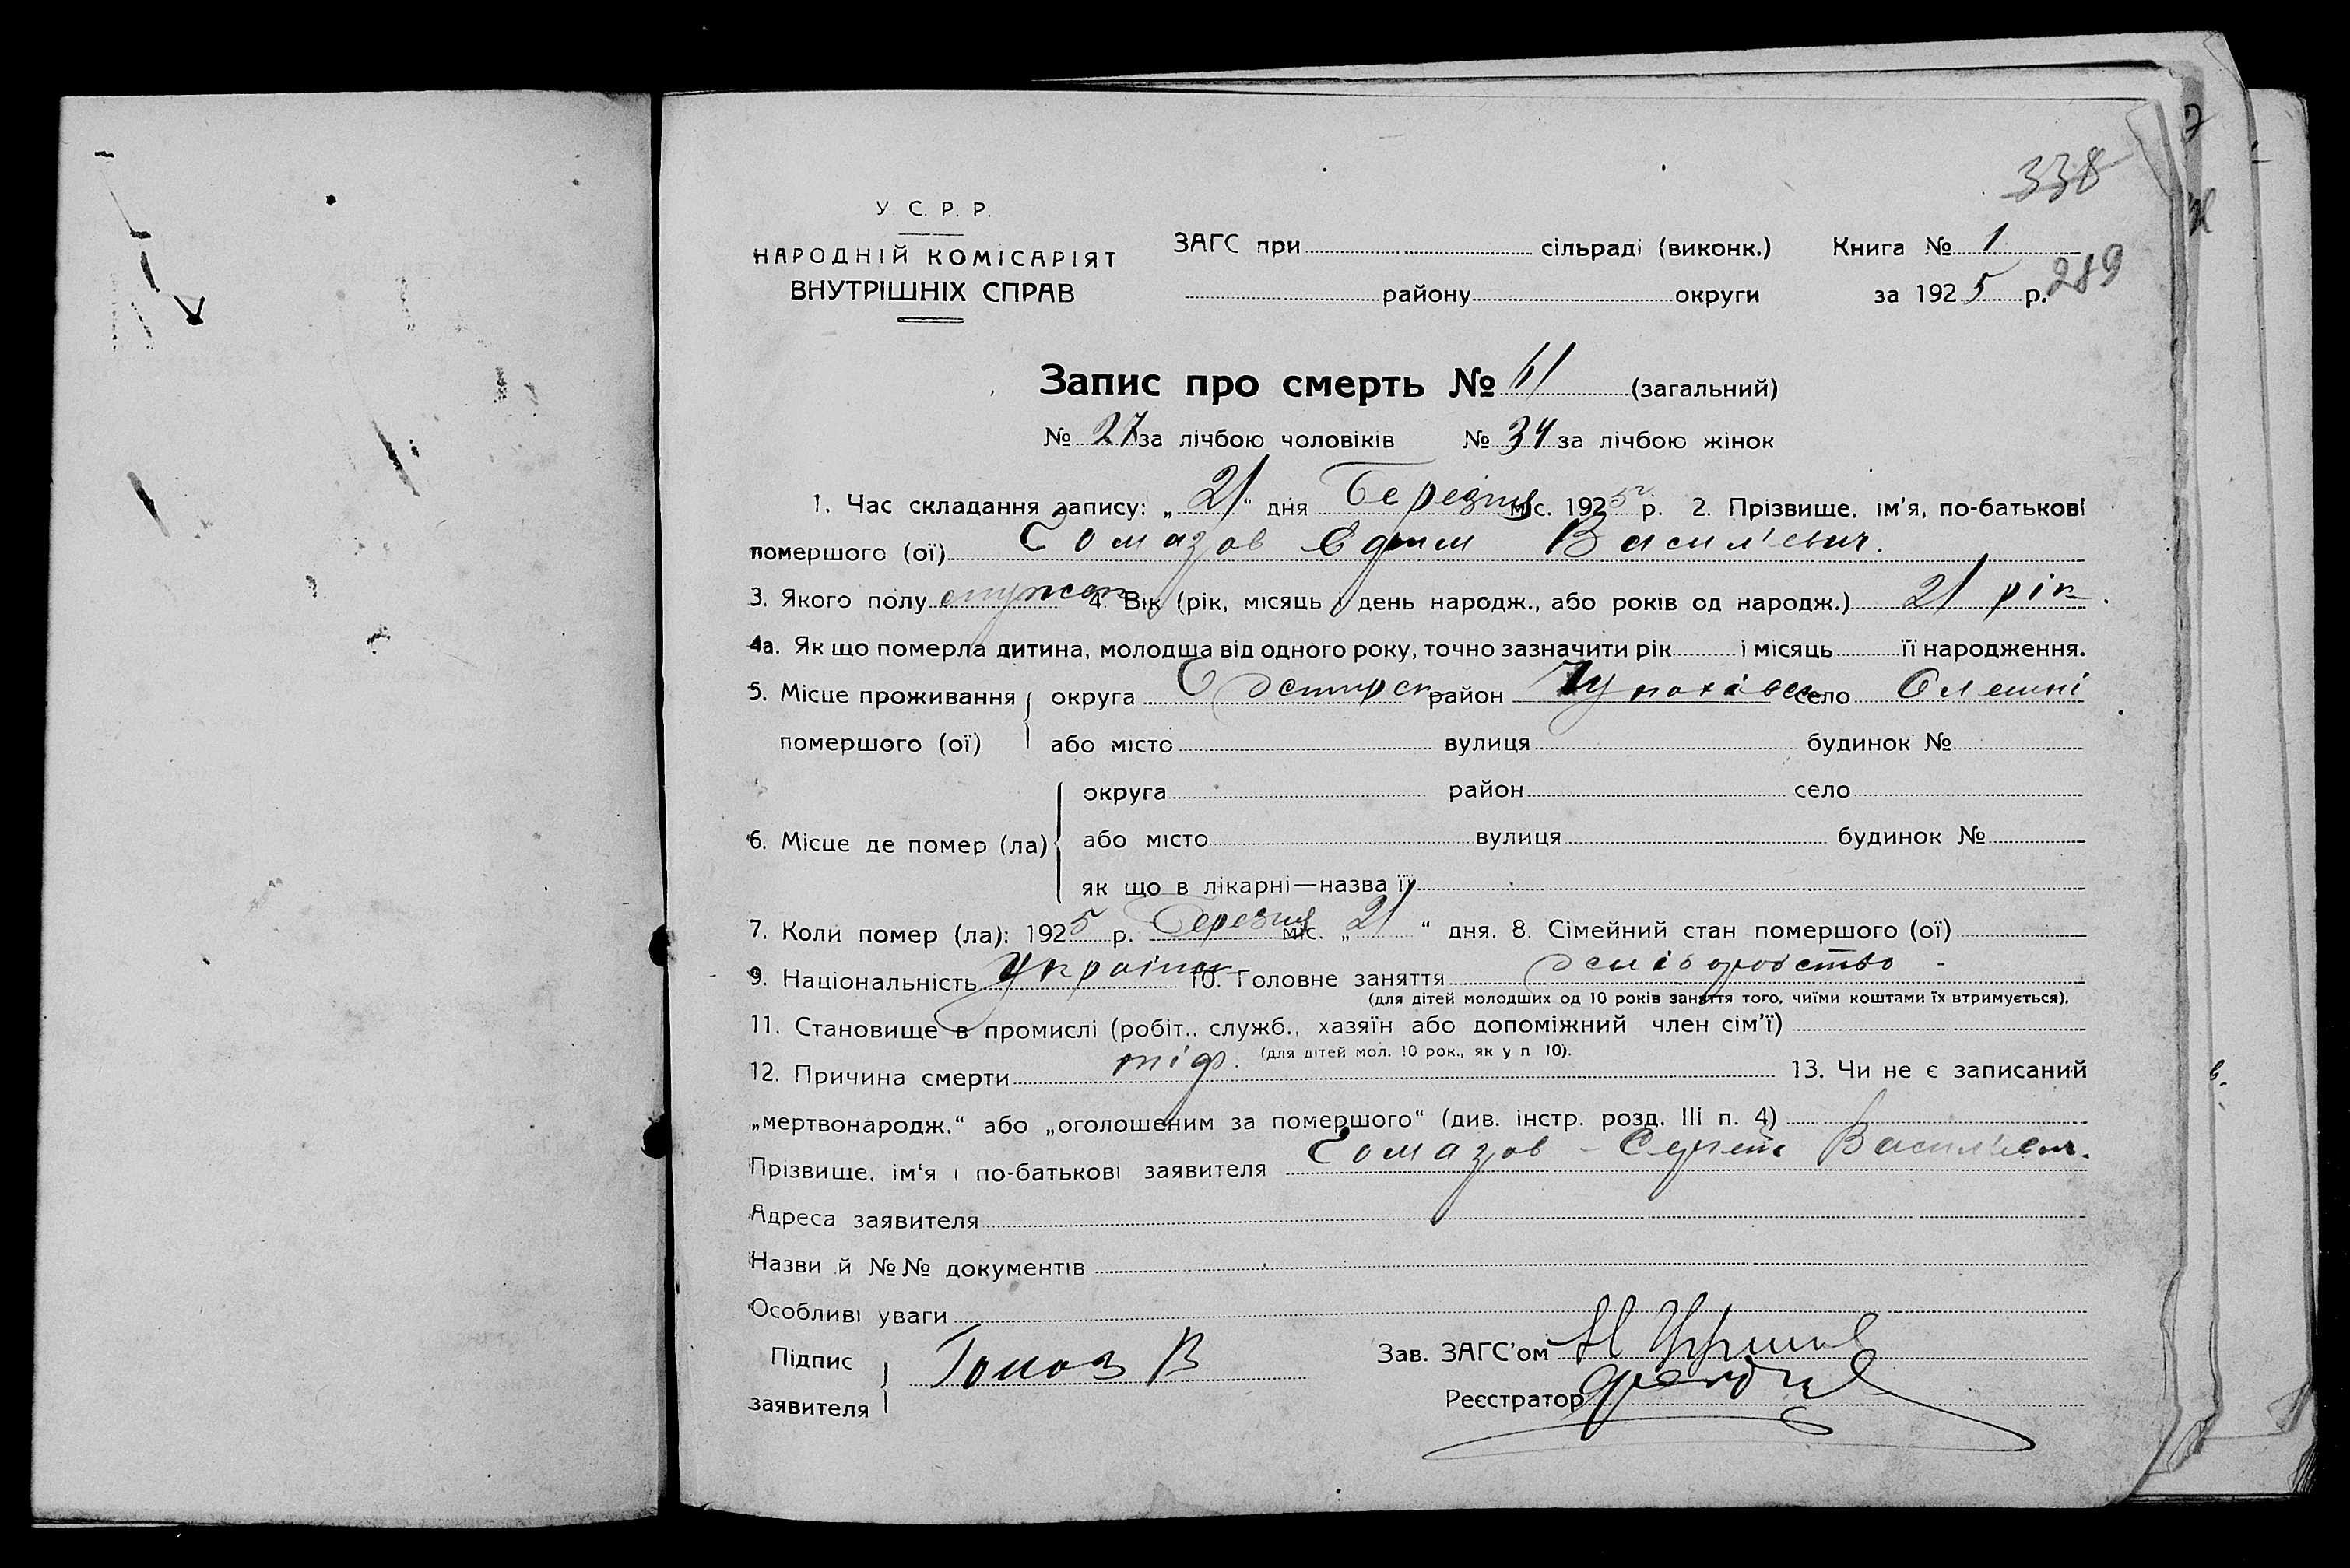 338
У. С. Р. Р.
НАРОДНІЙ КОМІСАРІЯТ
ВНУТРІШНІХ СПРАВ
ЗАГС при сільраді (виконк.)
району округи
Книга № 1
за 1925 р.
289
Запис про смерть № 61 (загальний)
№ 27 за лічбою чоловіків № 34 за лічбою жінок
1. Час складання запису: „21“ дня Березня міс. 1925 р. 2. Прізвище, ім'я, по-батькові
помершого (ої) Томазов Єфим Васил'євич.
3. Якого полу 4. Вік (рік, місяць і день народж., або років од народж.) 21 рік.
4а. Як що померла дитина, молодща від одного року, точно зазначити рік і місяць її народження.
5. Місце проживання округа район село
помершого (ої) або місто вулиця будинок №
округа район село
6. Місце де помер (ла) або місто вулиця будинок №
як що в лікарні—назва її
7. Коли помер (ла): 1925 р. Березня міс. „21“ дня. 8. Сімейний стан помершого (ої)
9. Національність Україн 10. Головне заняття
(для дітей молодших од 10 років заняття того, чиїми коштами їх втримується).
11. Становище в промислі (робіт., служб., хазяїн або допоміжний член сім'ї)
(для дітей мол. 10 рок., як у п 10).
12. Причина смерти тіф. 13. Чи не є записаний
„мертвонародж.“ або „оголошеним за помершого“ (див. інстр. розд. III п. 4)
Прізвище, ім'я і по-батькові заявителя Томазов Васил'євич.
Адреса заявителя
Назви й №№ документів
Особливі уваги
Підпис
заявителя
Томаз В
Зав. ЗАГС'ом
Реєстратор